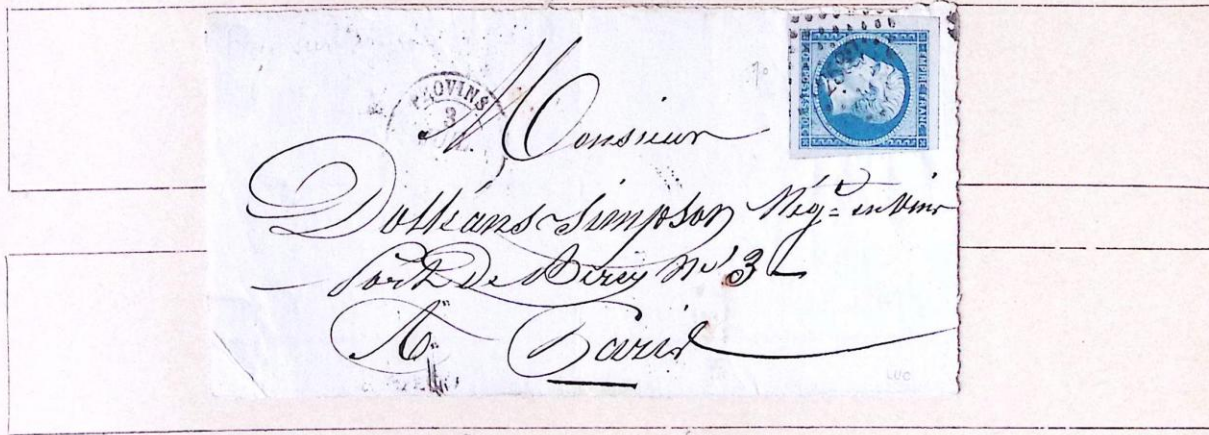 PROVINS
3
Monsieur
Dolléans Simpson Nég.t en Vins
Port de Bercy N.o 3
A Paris